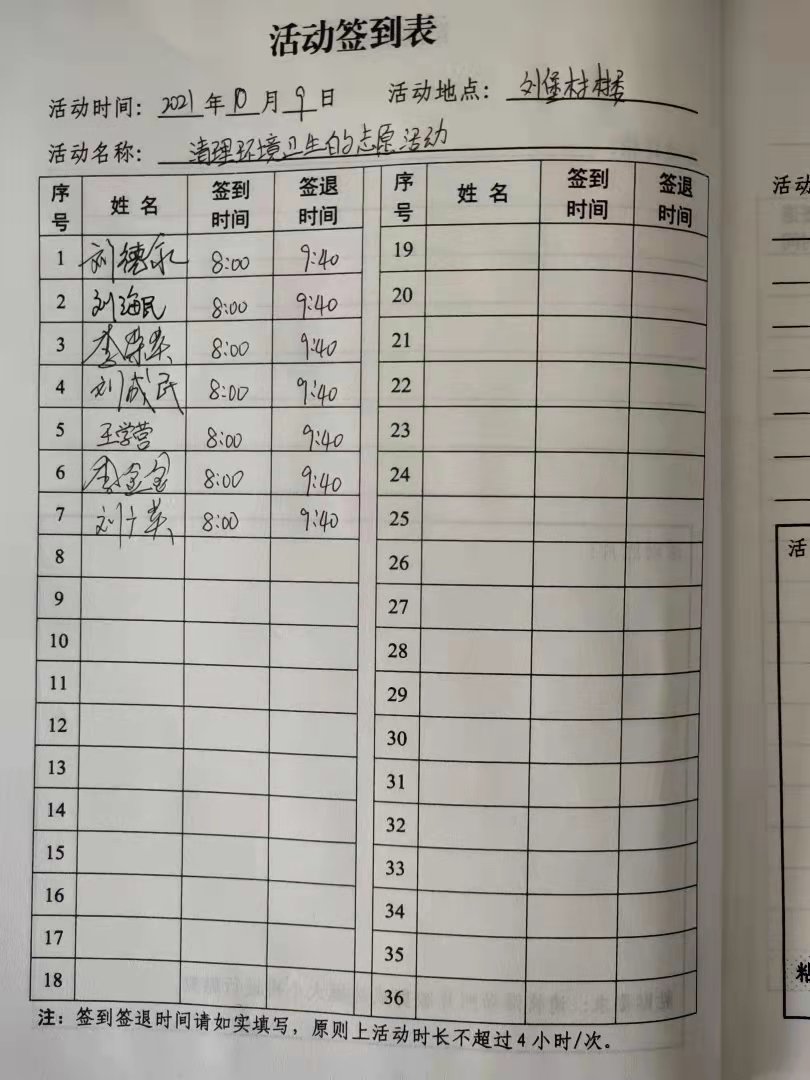 活动签到表
活动时间：2021年10月9日 活动地点：刘堡村村委
活动名称：清理环境卫生的志愿活动
序号 姓名 签到时间 签退时间 序号 姓名 签到时间 签退时间
1 刘德永 8:00 9:40 19
2 刘海民 8:00 9:40 20
3 李荣英 8:00 9:40 21
4 刘成民 8:00 9:40 22
5 王学营 8:00 9:40 23
6 李金宝 8:00 9:40 24
7 刘 英 8:00 9:40 25
8 26
9 27
10 28
11 29
12 30
13 31
14 32
15 33
16 34
17 35
18 36
注：签到签退时间请如实填写，原则上活动时长不超过4小时/次。
活动
活
粘